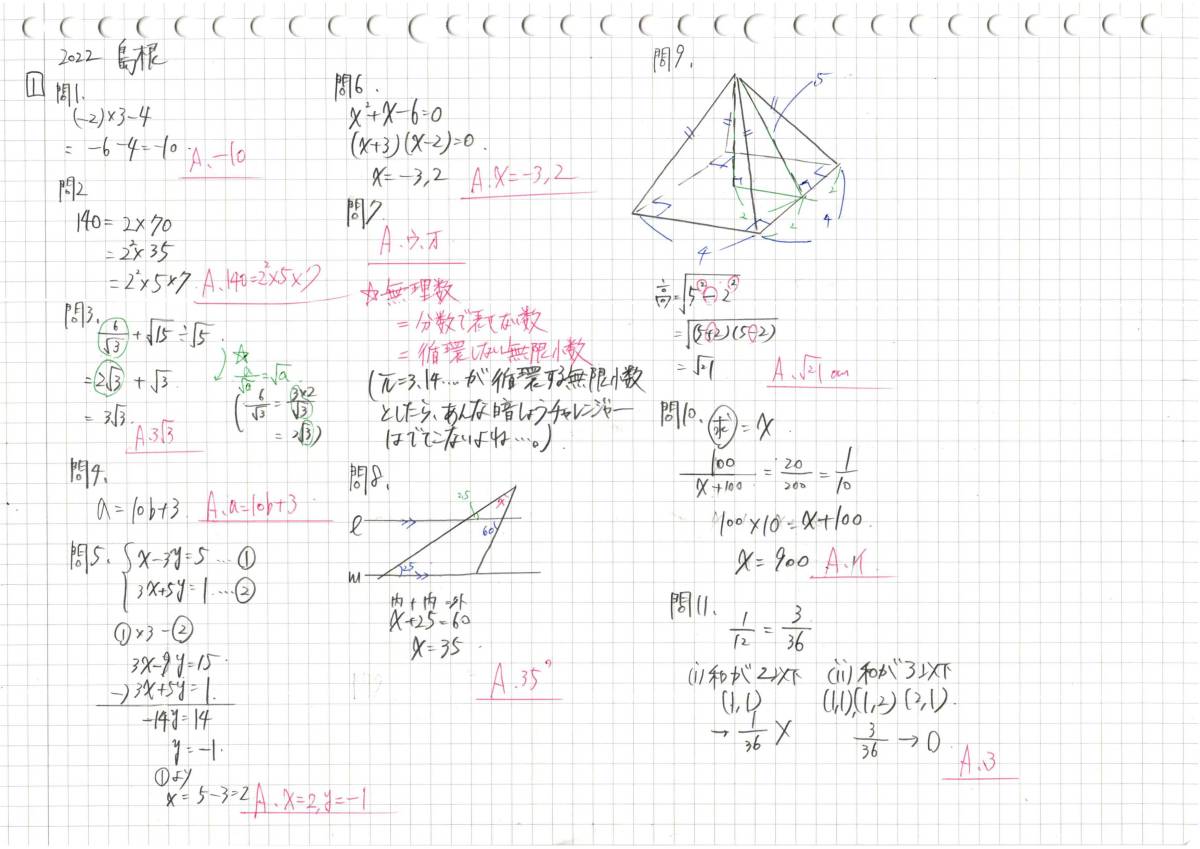 2022 島根
1
問1.
(-2)×3-4
= -6-4=-10.
A.-10
問2
140 = 2×70
= 2²×35
= 2²×5×7
A.140=2²×5×7
問3.
6/√3 + √15÷√5
= 2√3 + √3
= 3√3
A.3√3
☆
a/√a=√a
(6/√3 = 3×2/√3
= 2√3)
問4.
a=10b+3
A.a=10b+3
問5. { x-3y=5 … ①
3x+5y=1 … ②
①×3-②
3x-9y=15
-) 3x+5y=1
-14y=14
y=-1.
①より
x=5-3=2
A.x=2,y=-1
問6.
x²+x-6=0
(x+3)(x-2)=0
x=-3,2
A.x=-3,2
問7.
A.ウ,オ
☆無理数
=分数で表せない数
=循環しない無限小数
(π=3.14…が循環する無限小数
としたら、あんな暗しょうチャレンジャー
はでてこないよね…。)
問8.
25
x
ℓ
60
m
25
内+内=外
x+25=60
x=35
A.35°
問9.
5
2
2
2
4
4
高=√5²-2²
=√(5+2)(5-2)
=√21
A.√21 cm
問10.
求=x
100/x+100 = 20/200 = 1/10
100×10=x+100
x=900
問11.
1/12 = 3/36
(i)和が2以下
(1,1)
→ 1/36 ×
(ii)和が3以下
(1,1)(1,2)(2,1).
3/36 → ○
A.3